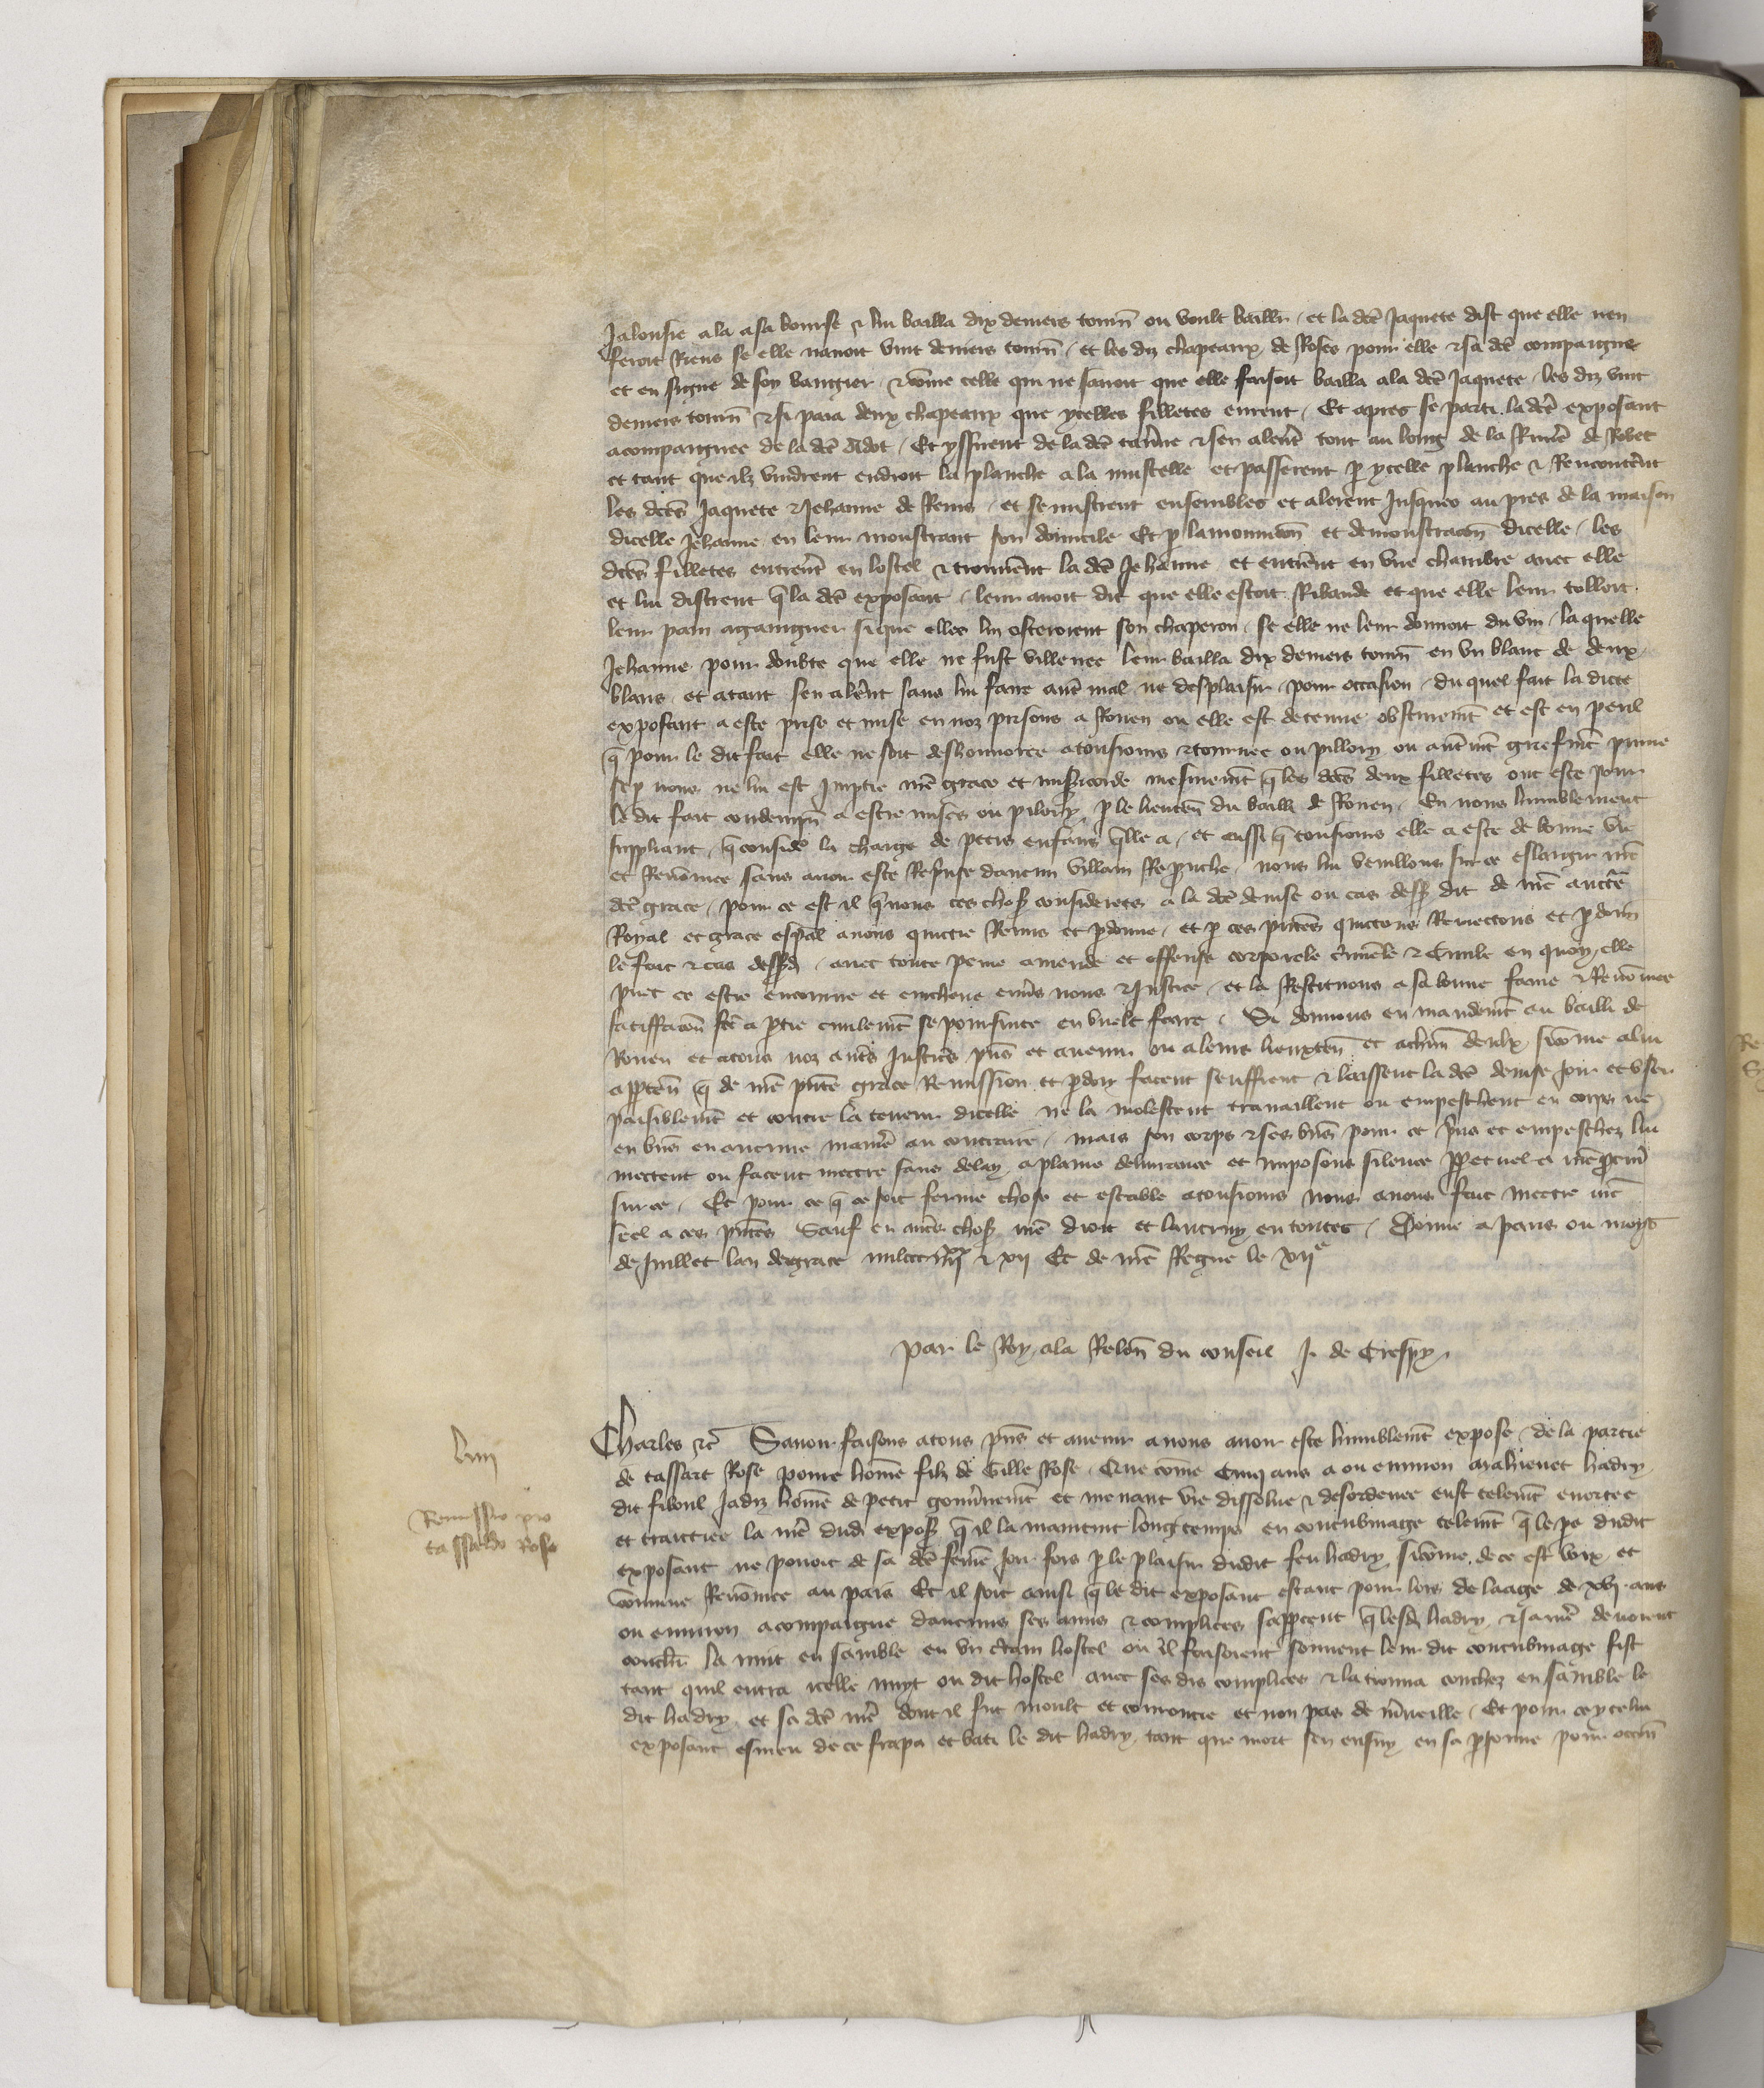 Jalousie ala a sa bourse & lui bailla dix deniers tourn ou voult baill et la dce Jaquete dist que elle nen
feroit Riens se elle navoit vint deniers tourn / et les diz chapeaux de Roses pour elle & sa dce compaigne
et en signe de soy vangier & come celle qui ne savoit que elle faisoit bailla ala dce Jaquete les diz vint
deniers tourn & si paia deux chapeaux que ycelles filletes eurent / Et apres se parti la dce exposant
acompaignee de la dce / Et yssirent de la dce taverne & sen alerent tout au long de la Riviere de Robec
et tant que ilz vindrent endroit la planche a la mustelle et passerent p ycelle planche & Rencontrent
les dces Jaquete & Jehanne de Reins / et se mistrent ensembles et alerent Jusques au pres de la maison
dicelle Jehanne en leur monstrant son domicile Et p lamonicion et demonstracon dicelle / les
dces filletes entrerent en lostel & trouverent la dce Jehanne et entrerent en une chambre avec elle
et lui distrent q la dce exposant / leur avoit dit que elle estoit Ribaude et que elle leur tolloit
leur pain agaigner si que elles lui osteroient son chaperon / se elle ne leur donnoit du vin / la quelle
Jehanne pour doubte que elle ne fust villenee leur bailla dix deniers tourn en un blanc de deux
blans et atant sen alerent sans lui faire aut mal ne desplaisir / pour occasion / du quel fait la dicte
exposant a este prise et mise en noz prisons a Rouen ou elle est detenue obscurement et est en peril
q pour le dit fait elle ne soit deshonnoree atousiours & tournee ou pillory ou autment griefment punie
se p nous ne lui est Impartie nre grace et misericorde mesmement q les dces deux filletes ont este pour
le dit fait condempn a estre mises ou pilory p le lieuten du bailli de Rouen / En nous humblement
suppliant / q consider la charge de petis enfans qelle a / et aussi q tousiours elle a este de bonne vie
et Renomee sans avoir este Reprinse daucun villain Reprouche / nous lui veuillons sur ce eslargir nre
dce grace / pour ce est il q nous ces choses considerees a la dce denise ou cas dessus dit de nre aucte
Royal et grace espal avons quictie Remis et pdonne / et p ces pntes quictons Remectons et pdonn
le fait & cas dessusd / avec toute peine amende et offense corporele criminele & Civile en quoy elle
puet ce estre encourue et encheue envers nous & Justice / et la Restituons a sa bonne fame & Renomee
satiffacon fce a ptie civilement se poursuite en vuelt faire / Si donnons en mandement au bailli de
Rouen et atous noz autres Justiciers pns et avenir ou aleurs lieuxten et achun deulx sicome alui
appten q de nre pnte grace Remission et pdon facent seuffrent & laissent la dce denise Joir et user
paisiblement et contre la teneur dicelle ne la molestent travaillent ou empeschent en corps ne
en biens en aucune maniere au contraire / mais son corps & ses biens pour ce prins et empeschez lui
mectent ou facent mectre sans delay a plaine delivrance et imposons silence ppetuel a nre procur
sur ce / Et pour ce q ce soit ferme chose et estable atousiours nous avons fait mectre nre
seel a ces pntes Sauf en autres choses nre droit et lautruy en toutes / Donne a paris ou moys
de Juillet lan de grace mil ccc iiiixx & xii Et de nre Regne le xiie
Par le Roy ala Relon du conseil J. de Crespy
Charles &c Savoir faisons atous pns et avenir a nous avoir este humblement expose de la partie
de tassart Rose povre home filz de Gille Rose / Que come Cinq ans a ou environ hadry
dit Jadiz home de petit gouvernement et menant vie dissolue & desordenee eust telement enortee
et traictiee la mere dud expos q il la maintint long temps en concubinage telement q le pe dudit
exposant ne povoit de sa dce feme Joir fors p le plaisir dudit feu hadry sicome de ce est voix et
comune Renomee au pais Et il soit ainsi q le dit exposant estant pour lors de laage de xvi ans
ou environ acompaigne daucuns ses amis & complices sappceut q lesd hadry & sa mere devoient
couchr la nuit en samble en un certain hostel ou il faisoient souvent leur dit concubinage fist
tant quil entra icelle nuyt ou dit hostel avec ses dis complices & la trouva couchez en samble le
dit hadry et sa dce mere dont il fut moult et courouce et non pas de merveille / Et pour ce ycelui
exposant esmeu de ce frapa et bati le dit hadry tant que mort sen ensuy en sa psonne pour occon
liiii
Remissio pro
tassardo Rose